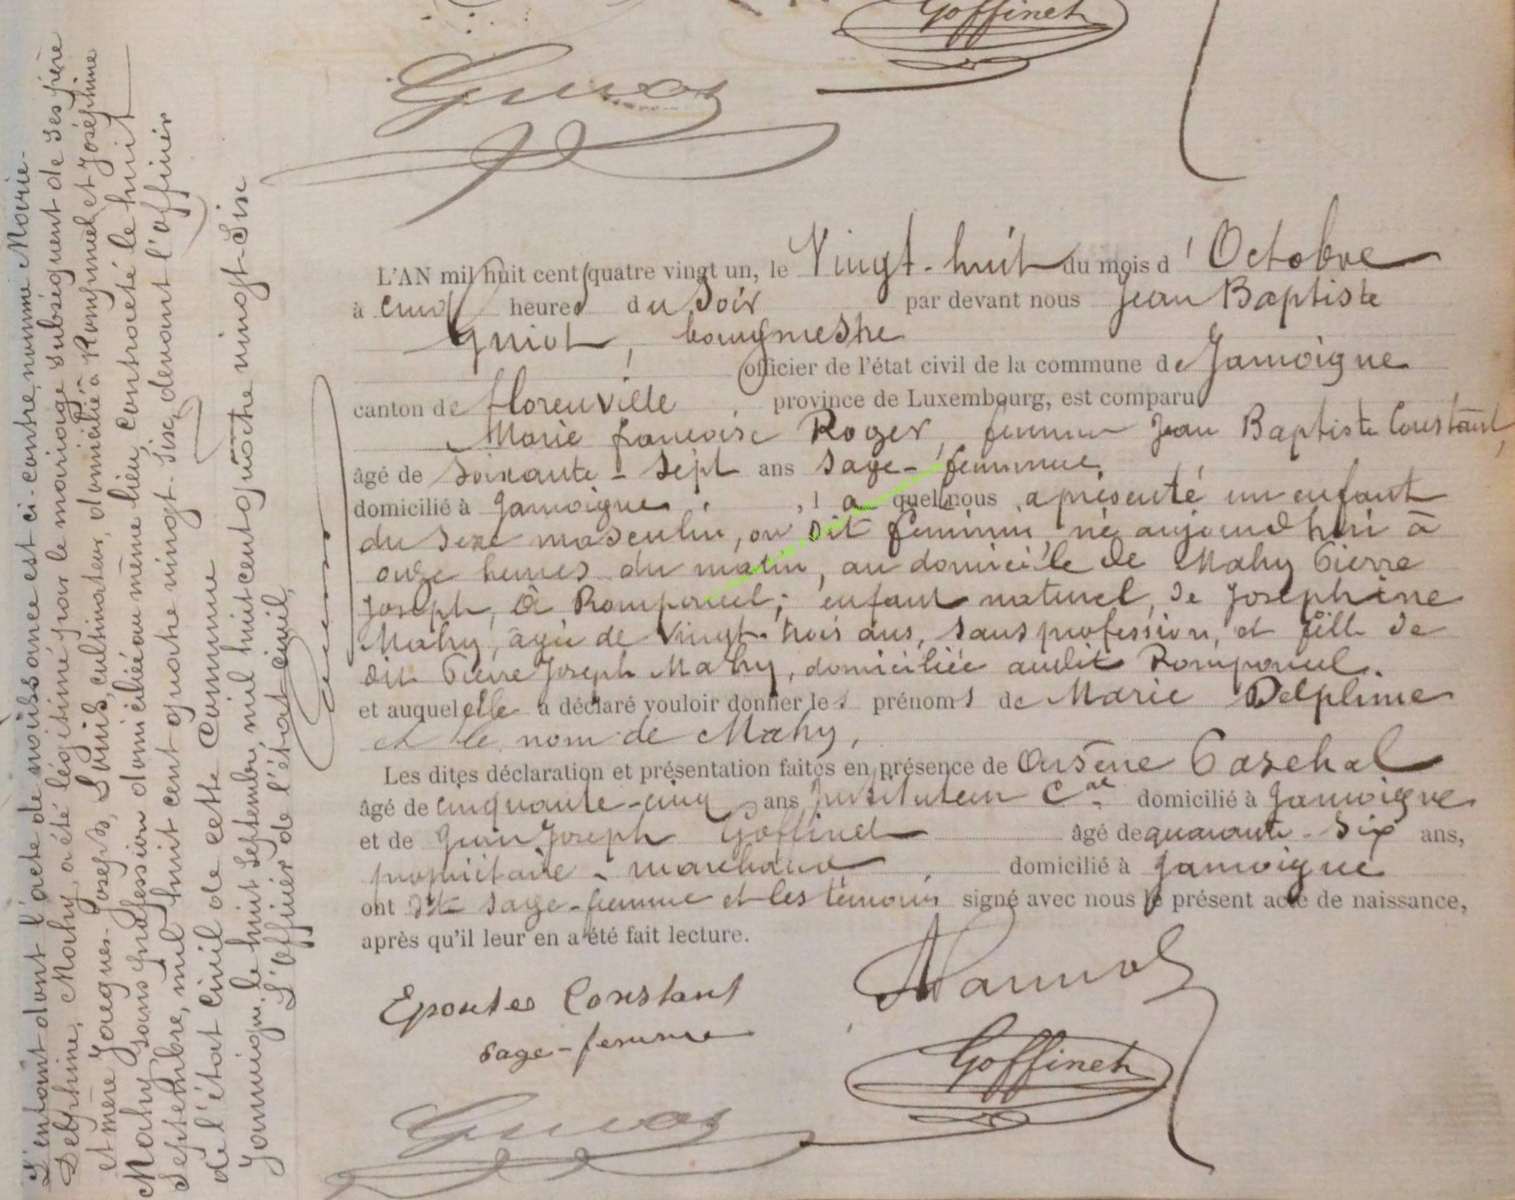 Goffinet
L'AN mil huit cent quatre vingt un, le Vingt-huit du mois d'Octobre
à cinq heures du Soir par devant nous Jean Baptiste
bourgmestre
officier de l'état civil de la commune de Jamoigne
canton de florenville, province de Luxembourg, est comparu
Marie françoise Roger, femme Jean Baptiste Constant,
âgé de Soixante-sept ans sage-femme,
domicilié à Jamoigne, laquelle nous a présenté un enfant
du sexe masculin, on dit feminin, né aujourd'hui à
onze heures du matin, au domicile de Mahy Pierre
Joseph, à Romponcel; enfant naturel, de Joséphine
Mahy, agée de vingt-trois ans, sans profession, et fille de
dit Pierre Joseph Mahy, domiciliée audit Romponcel.
et auquel elle a déclaré vouloir donner les prénoms de Marie Delphine
et le nom de Mahy,
Les dites déclaration et présentation faites en présence de Arsène Paschal
âgé de cinquante-cinq ans Instituteur Cal domicilié à Jamoigne
et de Joseph Goffinet âgé de quarante-six ans,
propriétaire-marchand, domicilié à Jamoigne
ont dit sage-femme et les témoins signé avec nous le présent acte de naissance,
après qu'il leur en a été fait lecture.
Epouse Constant
sage-femme
Goffinet
L'enfant dont l'acte de naissance est ci-contre, nommé Marie-
Delphine, Mahy, a été légitimé par le mariage subséquent de ses père
et mère Jacques-Joseph, Louis, cultivateur, domicilié à Romponcel et Joséphine
Mahy, sans profession domiciliée au même lieu, contracté le huit
Septembre, mil huit cent quatre vingt-six, devant l'officier
de l'état civil de cette Commune
Jamoigne, le huit Septembre, mil huit cent quatre vingt-six
L'officier de l'état civil,